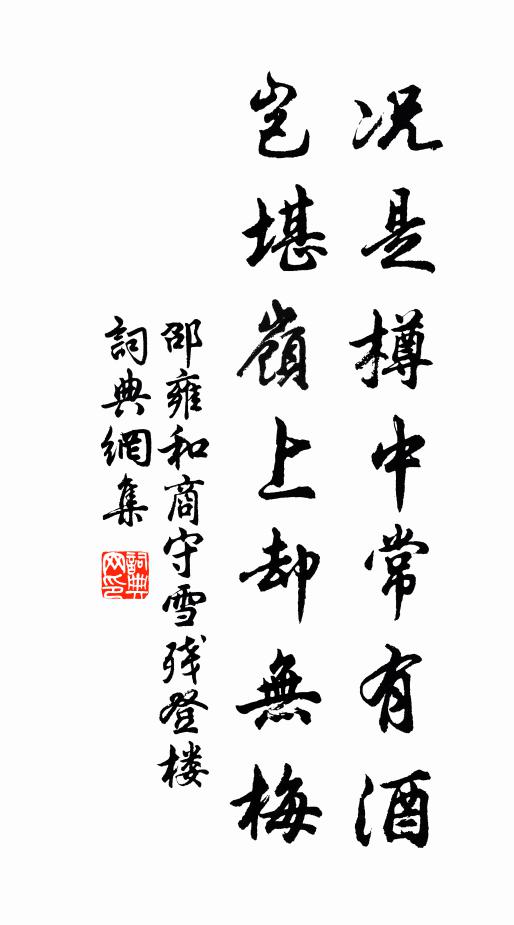 况是樽中常有酒
岂堪嶺上却無梅
邵雍和商守雪残登楼
詞典網集
詞典网印